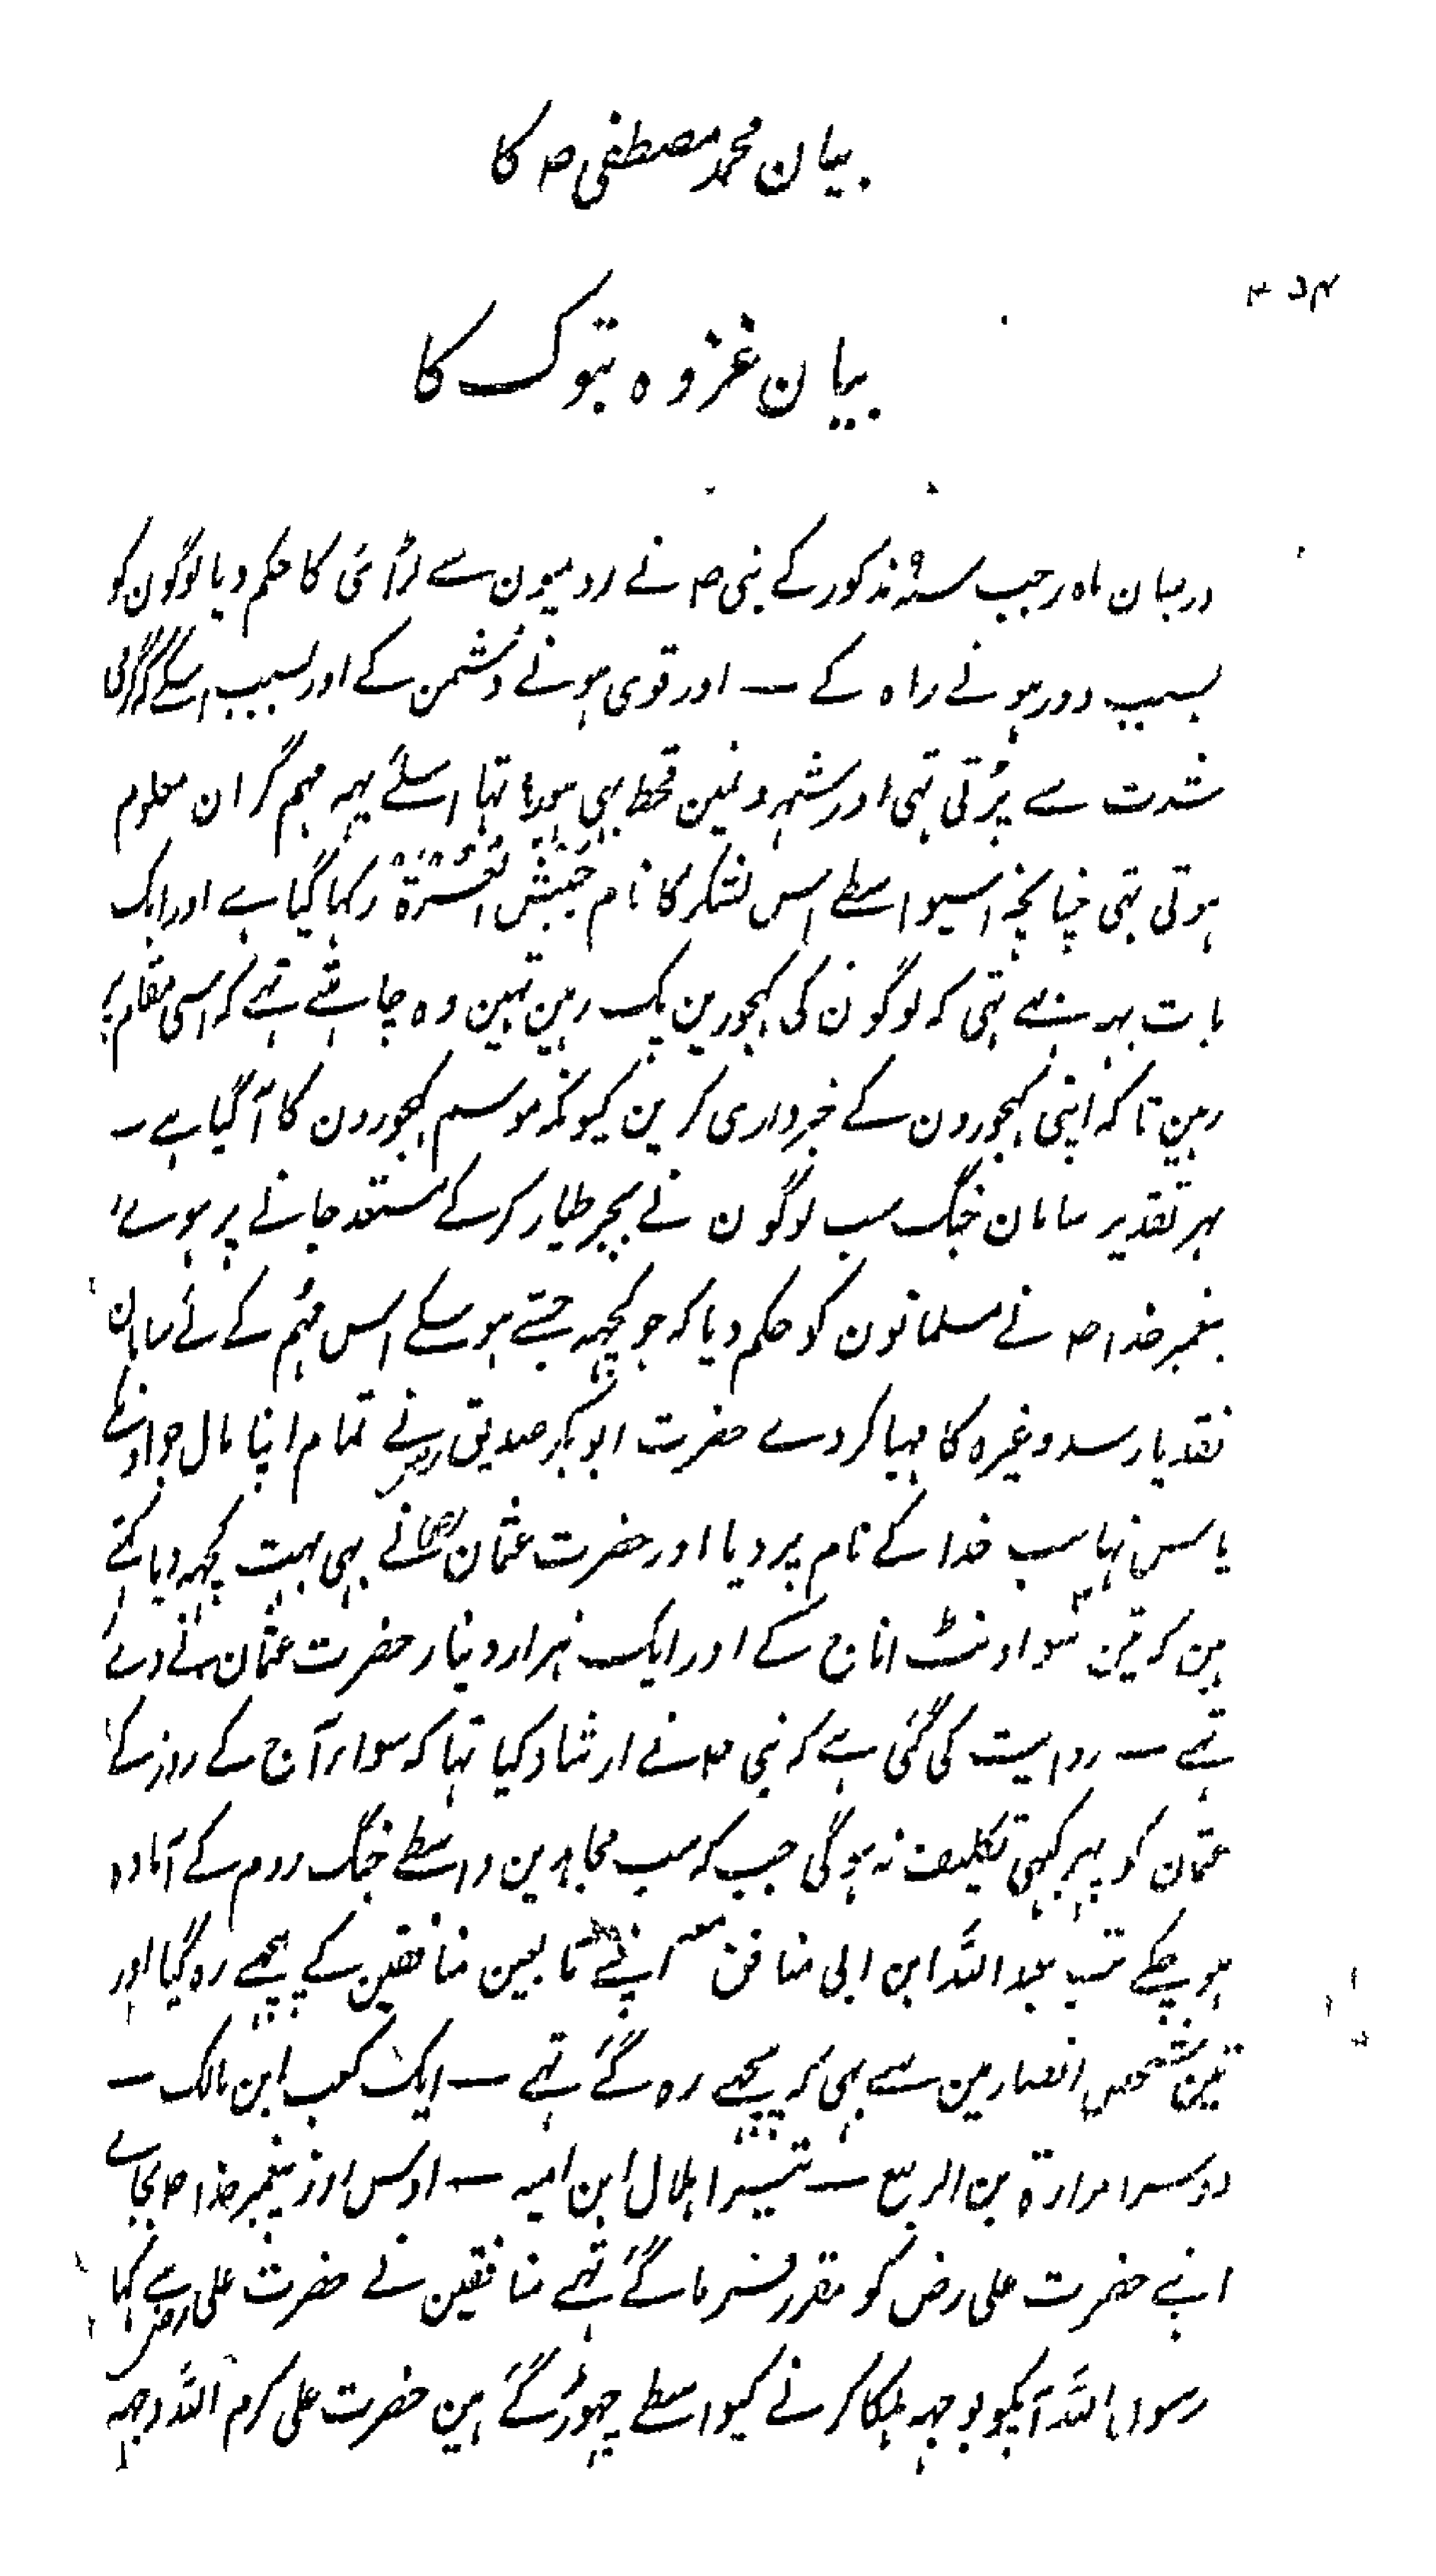 بیان محمد مصطفی ص کا
بیان غزوہ تبوک کا
درمیان ماہ رجب سنہ ۹ مذکور کے نبی ص نے رومیون سے لڑائی کا حکم دیا لوگون کو
بسبب دور ہونے راہ کے ــ اور قوی ہونے دشمن کے اور بسبب اسکے کہ گرمی
شدت سے پڑتی تہی اور شہرونمین قحط بہی ہورہا تہا اسلئے یہہ مہم گران معلوم
ہوتی تہی چنانچہ اسیواسطے اس لشکر کا نام جَیش العُسْرَة رکہا گیا ہے اور ایک
بات یہہ تہی کہ لوگون کی کہجورین پک رہین تہین وہ چاہتے تہے کہ اسی مقام پر
رہین تاکہ اپنی کہجورون کے خبرداری کرین کیونکہ موسم کہجورون کا آگیا ہے ــ
بہر تقدیر سامان جنگ سب لوگون نے بجبر طیار کرکے مستعد جانے پر ہوئے
پیغمبر خدا ص نے مسلمانون کو حکم دیا کہ جو کچہہ جسّے ہوسکے اس مہم کے لئے سامان
نقد یا رسد وغیرہ کا مہیا کردے حضرت ابوبکر صدیق رض نے تمام اپنا مال جو اونکے
پاس تہا سب خدا کے نام پر دیا اور حضرت عثمان رض نے بہی بہت کچہہ دیا کہتے
ہین کہ تین سو اونٹ اناج کے اور ایک ہزار دینار حضرت عثمان نے دے
تہے ــ روایت کی گئی ہے کہ نبی ص نے ارشاد کیا تہا کہ سوائے آج کے روز کے
عثمان کو پہر کبہی تکلیف نہ ہوگی جب کہ سب مجاہدین واسطے جنگ روم کے آمادہ
ہوچکے تب عبد اللہ ابن ابی منافق مع اپنے تابعین منافقین کے پیچہے رہ گیا اور
تین شخص انصار مین سے بہی کہ پیچہے رہ گئے تہے ــ ایک کعب ابن مالک ــ
دوسرا مرارة بن الربیع ــ تیسرا ہلال ابن امیہ ــ اوس روز پیغمبر خدا ص بجائے
اپنے حضرت علی رض کو مقرر فرما گئے تہے منافقین نے حضرت علی رض سے کہا
رسول اللہ آپکو بوجہہ ہلکا کرنے کیواسطے چہوڑ گئے ہین حضرت علی کرم اللہ وجہہ